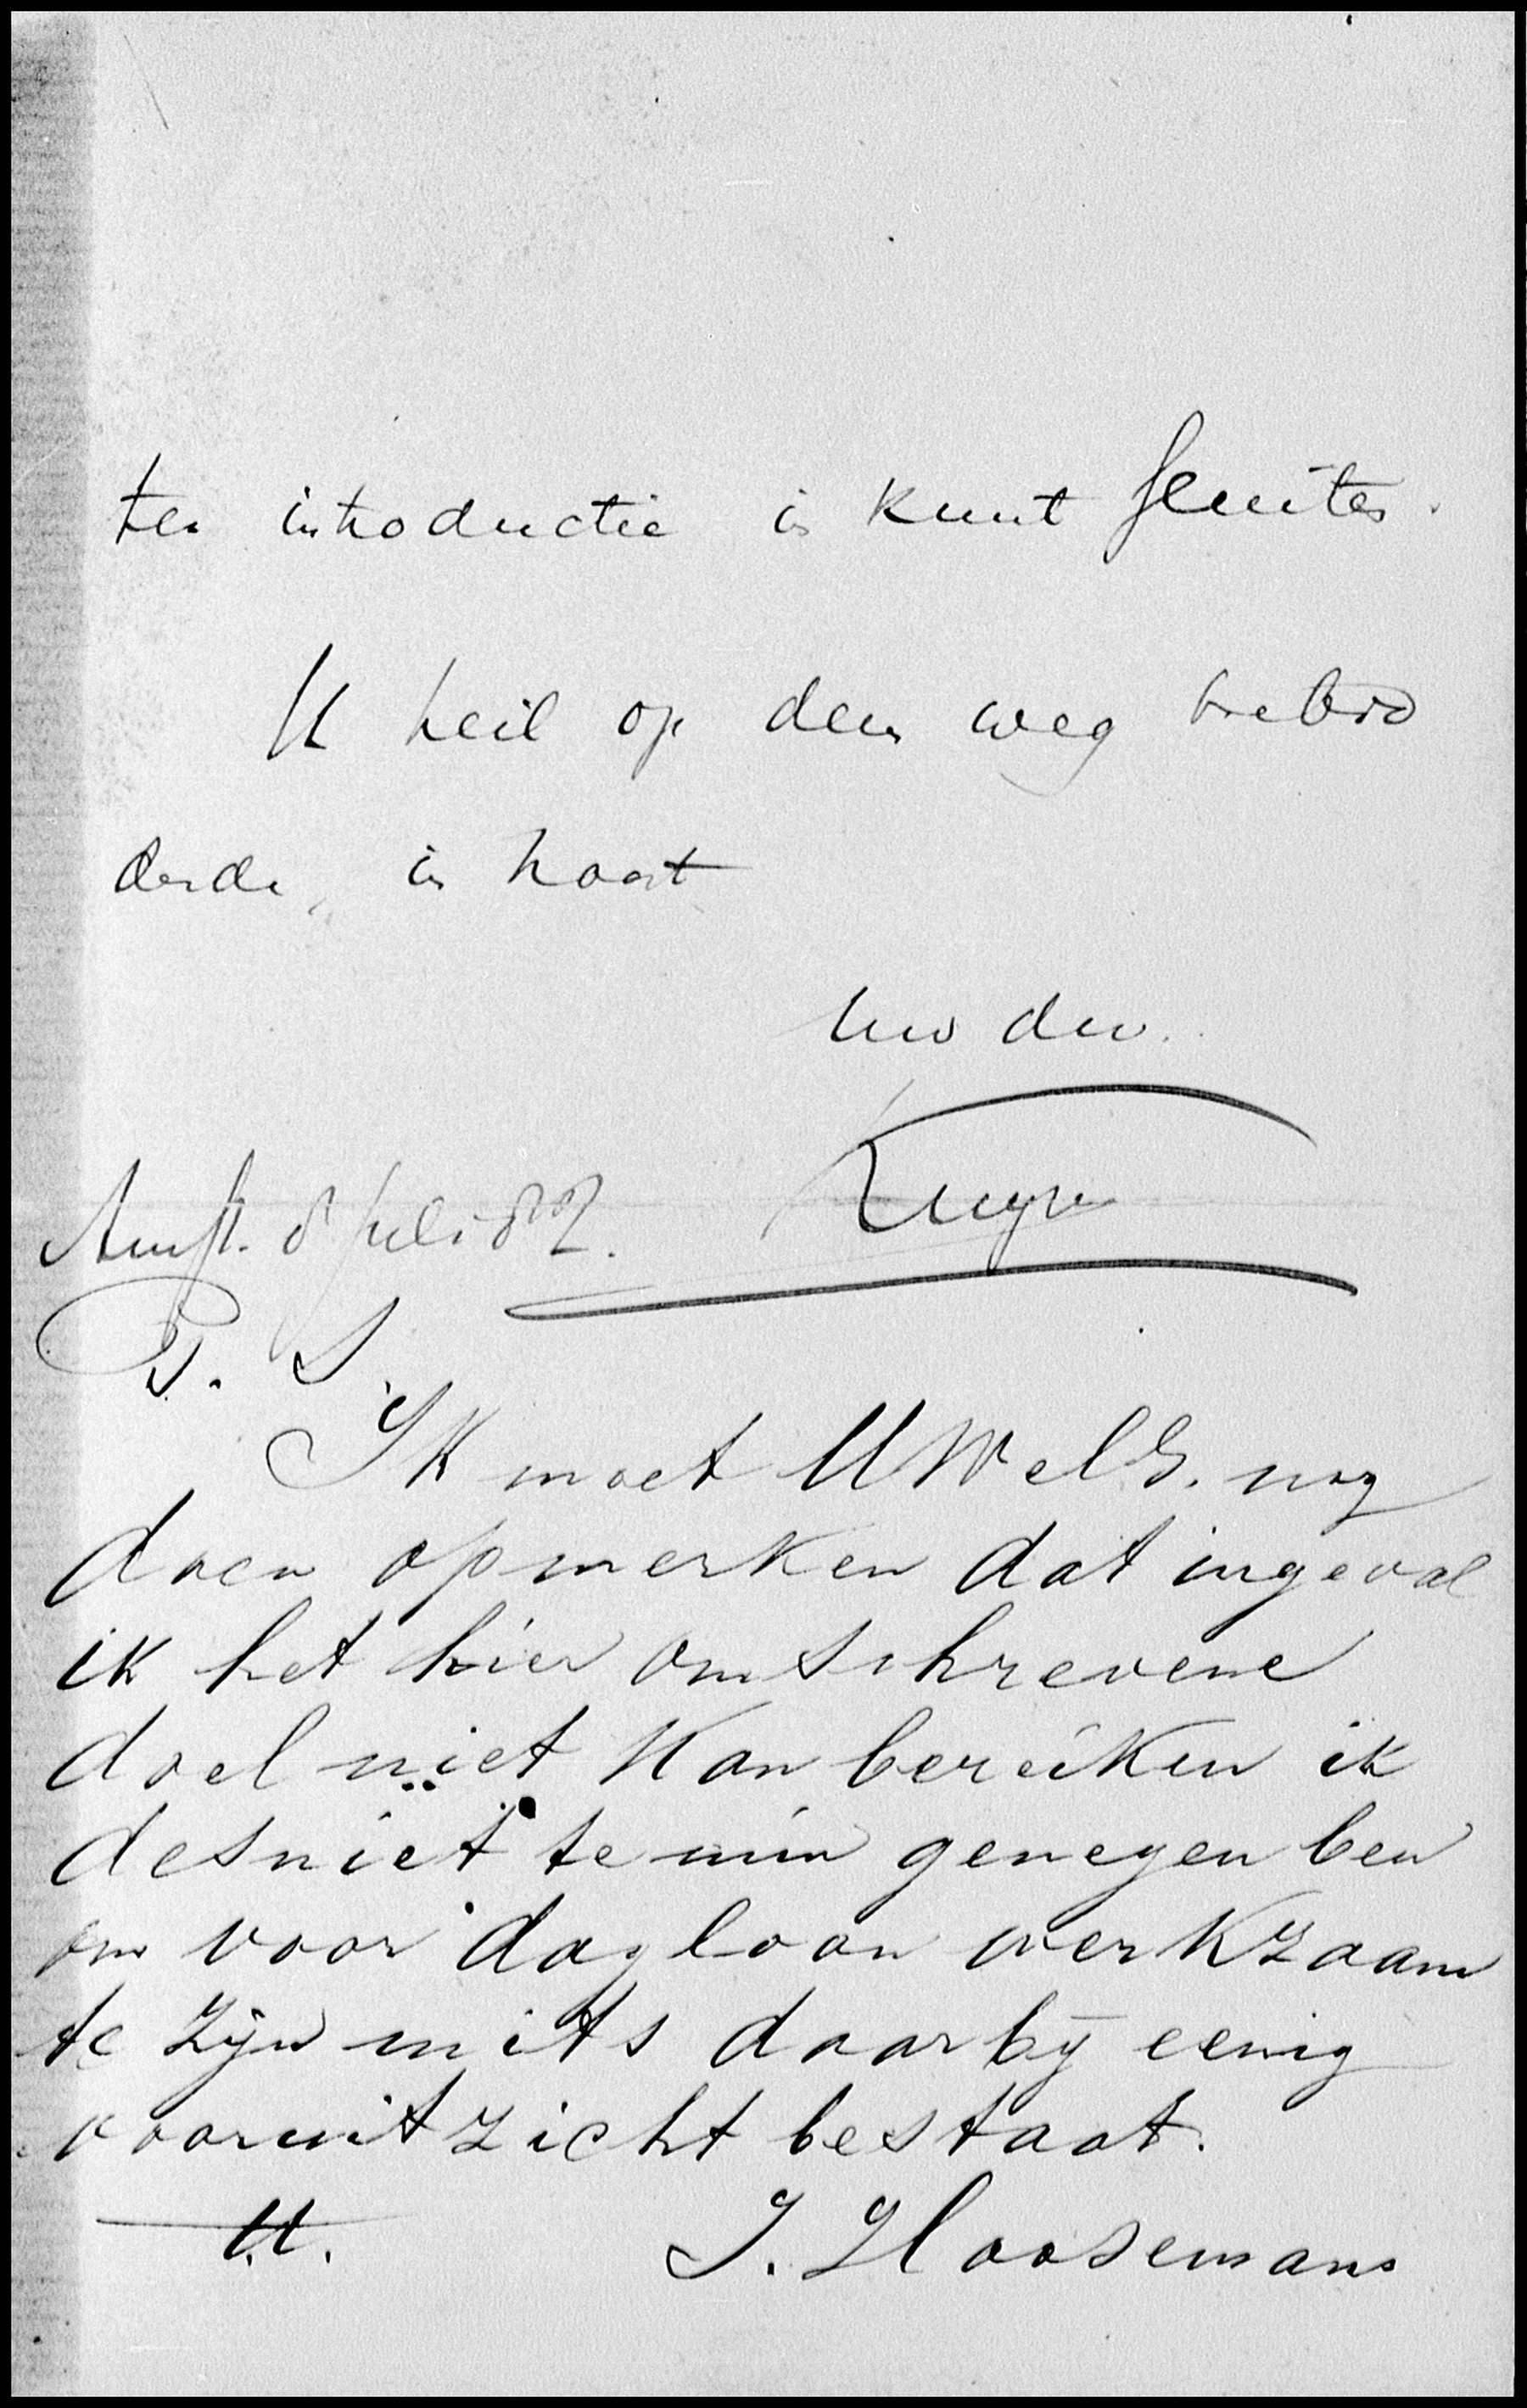 ter introductie in kunt sluiten.
U heil op den weg
in haast
Uw dw.
Kuyper
Amst. 8 Juli 82.
P. S.
Ik moet UWelG. nog
doen opmerken dat ingeval
ik het hier omschrevene
doel niet kan bereiken ik
desniet te min genegen ben
om voor dagloon werkzaam
te zijn mits daarbij eenig
vooruitzicht bestaat.
J. Hoosemans